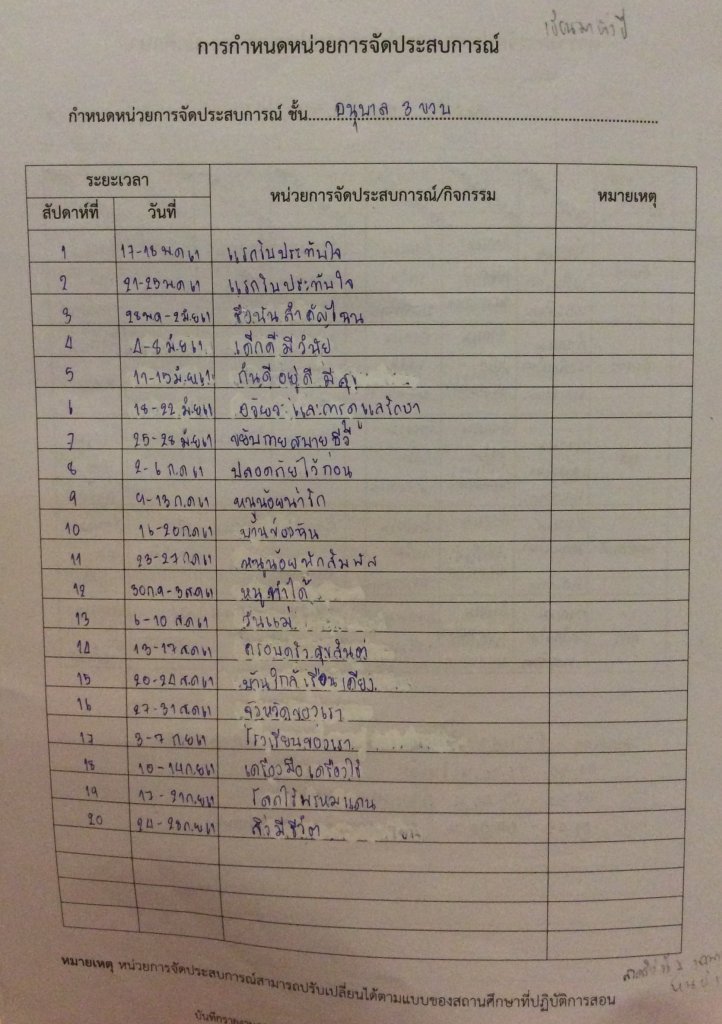 การกำหนดหน่วยการจัดประสบการณ์
กำหนดหน่วยการจัดประสบการณ์ ชั้น อนุบาล 3 ขวบ
ระยะเวลา หน่วยการจัดประสบการณ์/กิจกรรม หมายเหตุ
สัปดาห์ที่ วันที่
1 17-18 พ.ค 61 แรกรับประทับใจ
2 21-25 พ.ค 61 แรกรับประทับใจ
3 28 พ.ค - 2 มิ.ย 61 สำคัญไฉน
4 4-8 มิ.ย 61 เด็กดีมีวินัย
5 11-15 มิ.ย 61 กินดี อยู่ดี มีสุข
6 18-22 มิ.ย 61 อวัยวะและการดูแลรักษา
7 25-28 มิ.ย 61 ขยับกายสบายชีวี
8 2-6 ก.ค 61 ปลอดภัยไว้ก่อน
9 9-13 ก.ค 61 หนูน้อยน่ารัก
10 16-20 ก.ค 61 บ้านของฉัน
11 23-27 ก.ค 61 หนูน้อยนักสัมผัส
12 30 ก.ค - 3 ส.ค 61 หนูทำได้
13 6-10 ส.ค 61 วันแม่
14 13-17 ส.ค 61 ครอบครัวสุขสันต์
15 20-24 ส.ค 61 บ้านใกล้เรือนเคียง
16 27-31 ส.ค 61 จังหวัดของเรา
17 3-7 ก.ย 61 โรงเรียนของเรา
18 10-14 ก.ย 61 เครื่องมือเครื่องใช้
19 17-21 ก.ย 61 โลกไร้พรหมแดน
20 24-28 ก.ย 61 สิ่งมีชีวิต
หมายเหตุ หน่วยการจัดประสบการณ์สามารถปรับเปลี่ยนได้ตามแบบของสถานศึกษาที่ปฏิบัติการสอน